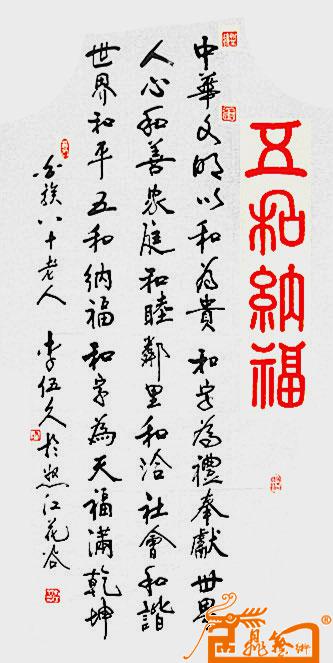 五和納福
中華文明以和為貴 和字為禮奉獻世界
人心和善家庭和睦鄰里和洽社會和諧
世界和平五和納福 和字為天福滿乾坤
族八十老人 李伍久於江花谷